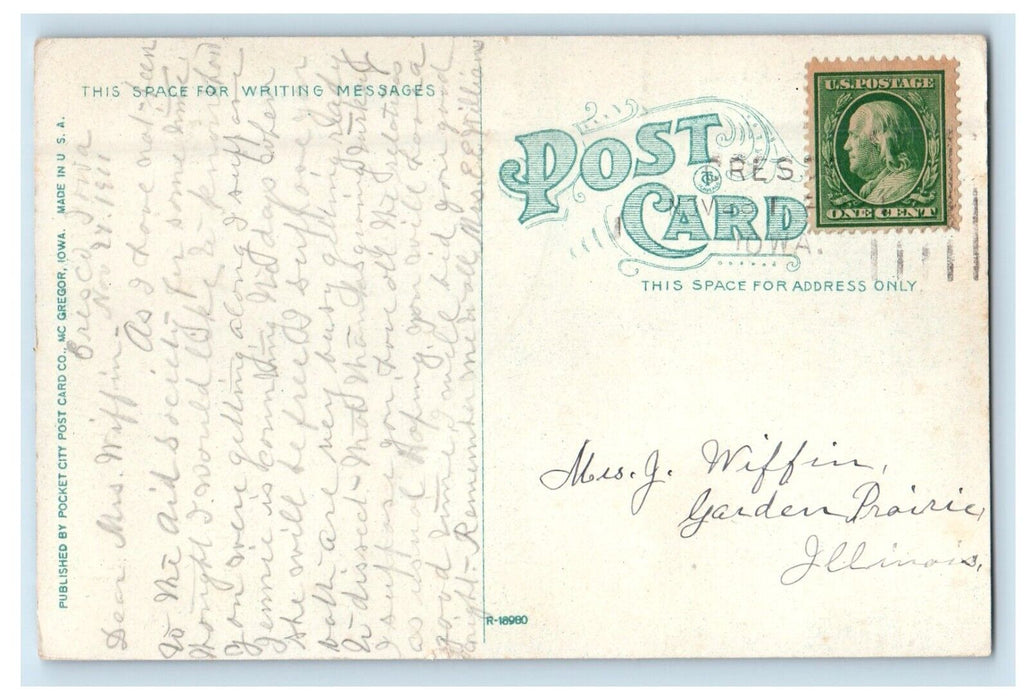 THIS SPACE FOR WRITING MESSAGES
PUBLISHED BY POCKET CITY POST CARD CO., MC GREGOR, IOWA. MADE IN U.S.A.
Cresco Iowa
Nov. 27. 1911
Dear Mrs. Wiffin -
As I have not been
to the aid society for some time,
thought I would like to know how
you were getting along I suppose
Jennie is counting the days when
she will be free I suppose you
both are very busy getting ready
to dissect that thanksgiving turkey
I suppose you have all the relations
as usual Hoping you will have a
good time, will bid you good
night. Remember me to all. Mrs E E William
POST CARD
U.S. POSTAGE
ONE CENT
CRES
NOV
IOWA.
THIS SPACE FOR ADDRESS ONLY
Mrs. J. Wiffin,
Garden Prairie,
Illinois.
R-18980